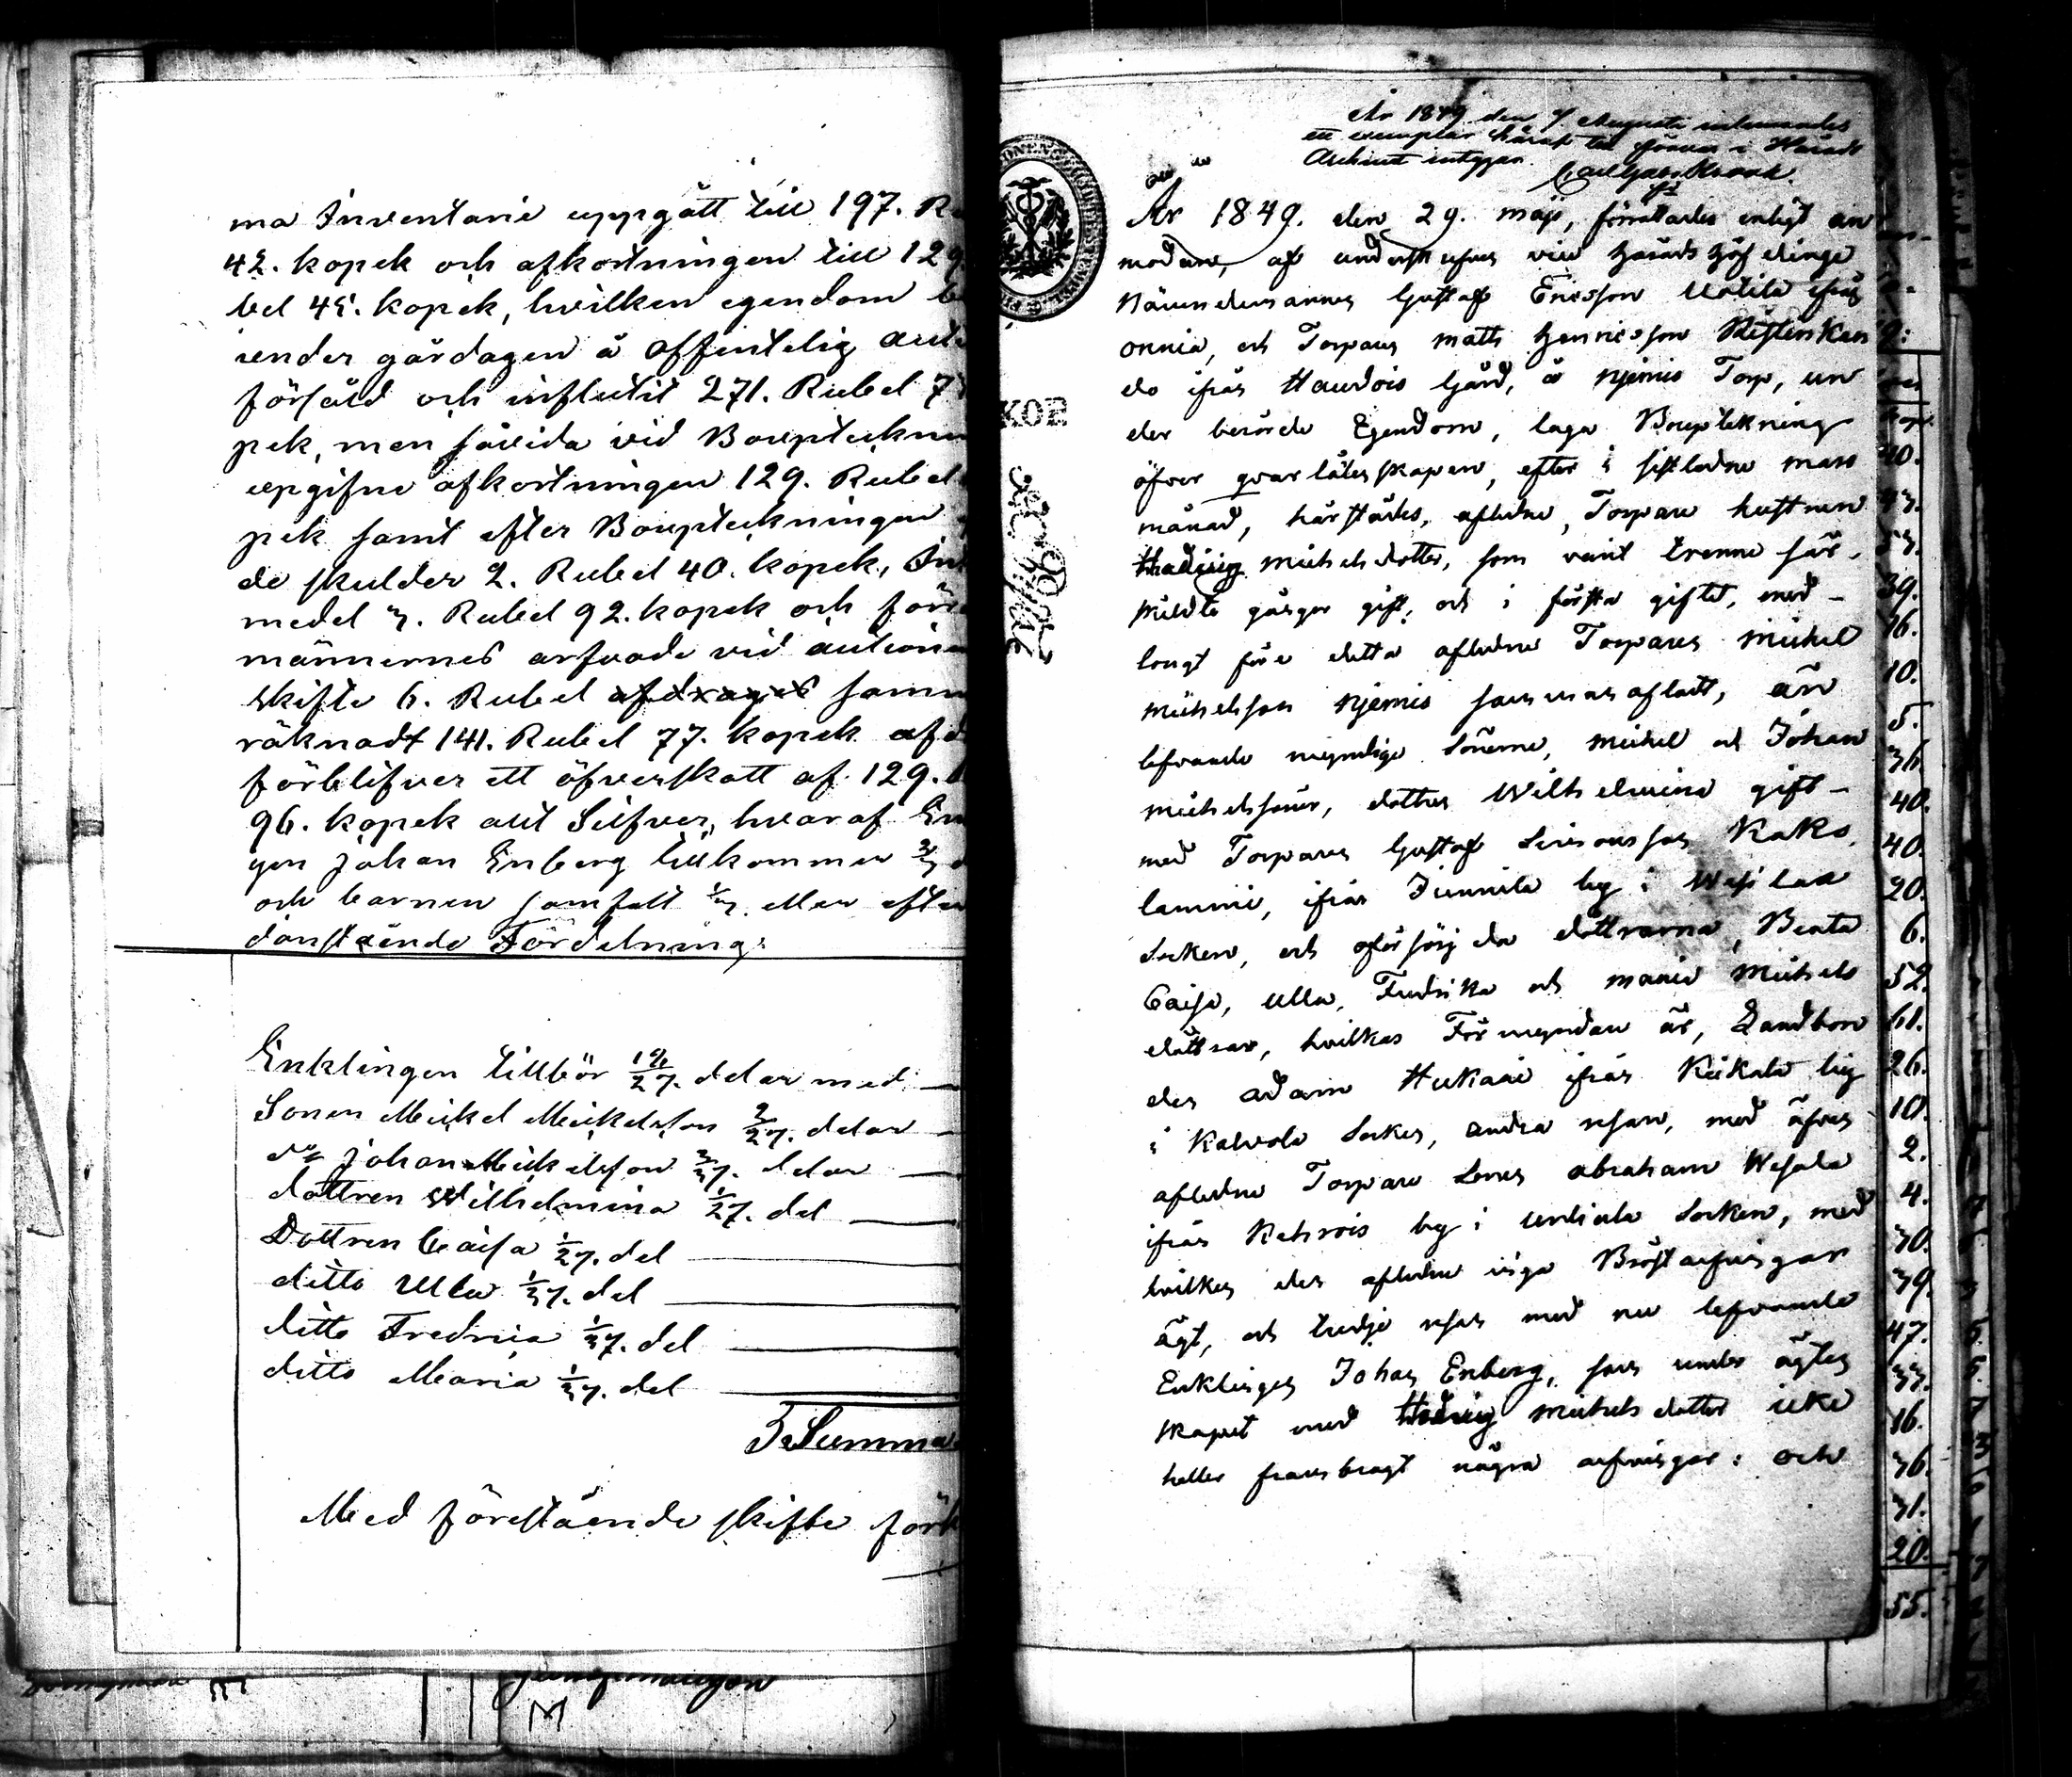 ma Inventarie uppgått till 197. R
42. kopek och afkortningen till 129
bel 45. kopek, hvilken egendom b
under gårdagen å offentelig auk
försåld och influtit 271. Rubel 7
pek, men såvida vid Bouptekn
upgifne afkortningen 129. Rubel
pek samt efter Bouptekningen
de skulder 2. Rubel 40. kopek,
medel 3. Rubel 92. kopek och för
männernes arfvode vid auction
skifte 6. Rubel afdrages samm
räknadt 141. Rubel 77. kopek afd
förblifver ett öfverskott af 129.
96. kopek allt Silfver, hvaraf En
gen Johan Enberg tillkommer 2/3
och barnen samfelt 1/3 eller efter
danstående Fördelning:
Enklingen tillhör 18/27. delar med
Sonen Michel Michelsson 2/27. delar
d:o Johan Michelsson 2/27. delar
dottren Wilhelmina 1/27. del
Dottren Caisa 1/27. del
ditto Ulla 1/27. del
ditto Fredrica 1/27. del
ditto Maria 1/27. del
Summa
Med förestående skifte förk
År 1849 den 7 Augusti inlemnades
ett exemplar härat till förvar i Härads
Archivet intygar.
År 1849. den 29. maji, förrättades enligt an
modan, af undertecknad vid Härads Höfdinge
Nämndemannen Gustaf Ericsson Uotila ifrån
onnia, och Torparen Matts Henricsson
do ifrån Haudois Gård, å Njemis Torp, un
der berörde Egendom, laga Bouptekning
öfver qvarlåtenskapen, efter i sistledne mars
månad, härstädes, aflidne, Torpare hustrun
Hedvig Michelsdotter, som varit trenne sär-
skildte gånger gift, och i första giftet, med
longt före detta aflidne Torparen Michel
Michelsson Njemis sammanaflat, än
lefvande myndige Sönerne, Michel och Johan
Michelssöner, dotter Wilhelmina gift
med Torparen Gustaf Simonsson Kaks,
lammi, ifrån Junnila by i Wesilax
Socken, och oförsörjda döttrarna, Beata
Caisa, Ulla, Fredrika och Maria Michels
döttrar, hvilkas Förmyndare är, Landbon
den Adam Hukari ifrån Keikala by
i Kalvola Socken, andra resan, med äfven
aflidne Torpare Sonen Abraham Wesala
ifrån Kehrois by i Urdiala Socken, med
hvilken den aflidne inga Bröstarfvingar
ägt, och tredje resan med nu lefvande
Enklingen Johan Enberg, som under ägten
skapet med Hedvig Michelsdotter icke
heller frambragt några arfvingar: och
40.
39.
76.
10.
5.
36.
40.
40.
20.
6.
52.
61.
26.
10.
2.
4.
30.
39.
47.
33.
16.
36.
31.
20.
55.